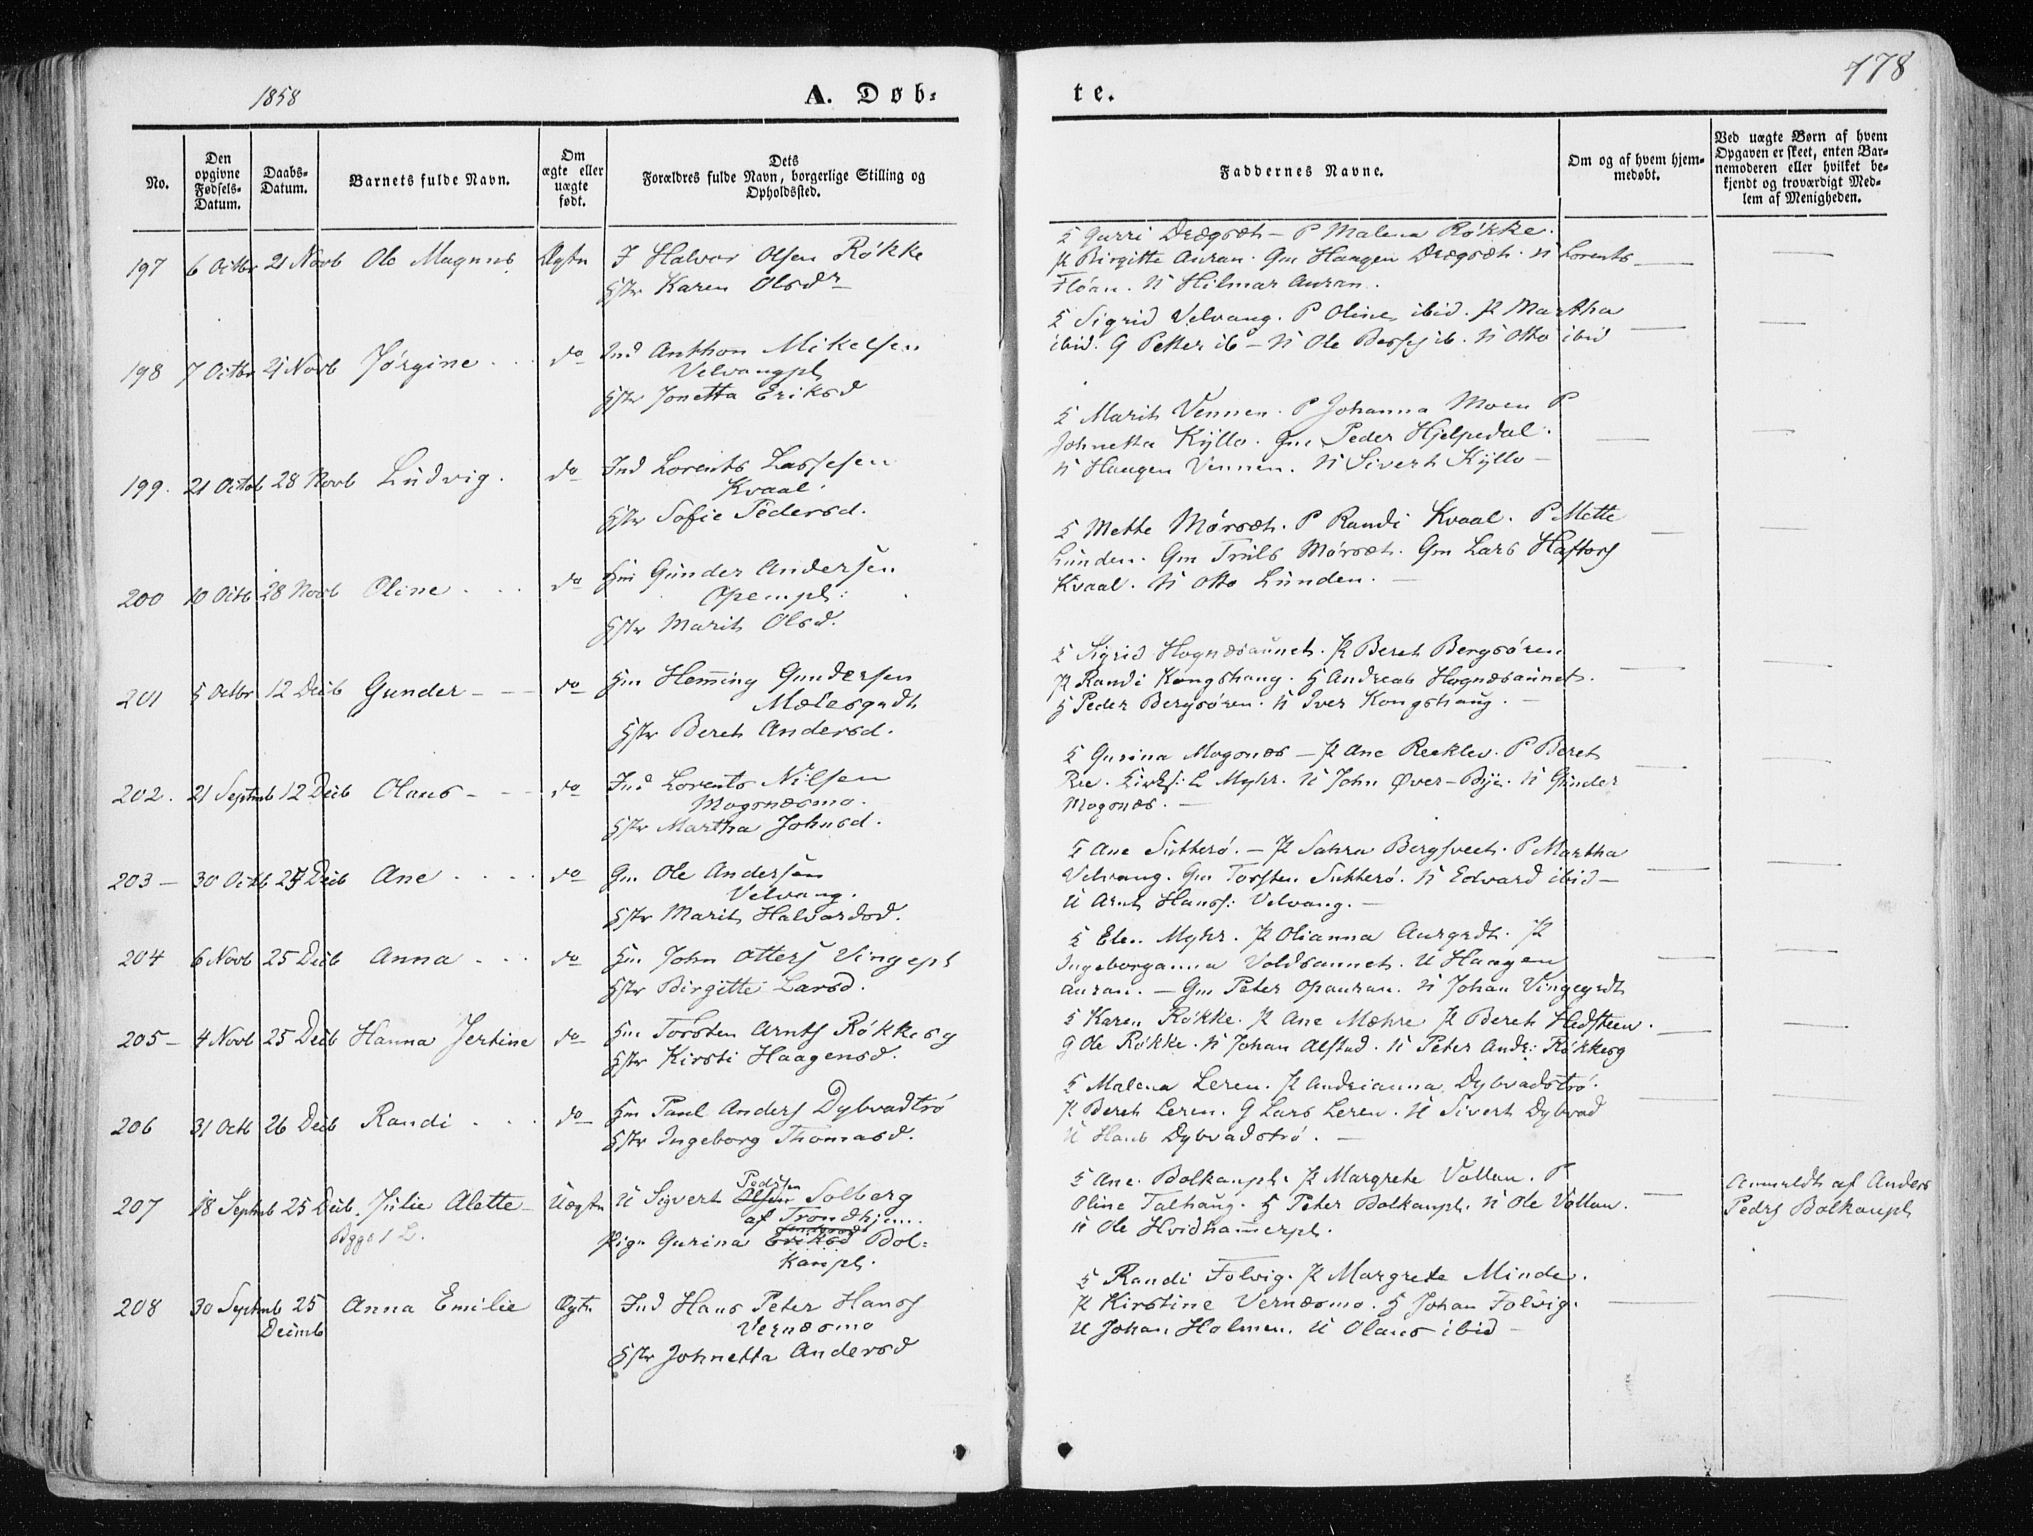 1858
A. Døb-
te.
178
No.
Den opgivne Fødsels-Datum.
Daabs-Datum.
Barnets fulde Navn.
Om ægte eller uægte født.
Dets Forældres fulde Navn, borgerlige Stilling og Opholdssted.
Faddernes Navne.
Om og af hvem hjem-medøbt.
Ved uægte Børn af hvem Opgaven er skeet, enten Bar-nemoderen eller hvilket be-kjendt og troværdigt Med-lem af Menigheden.
197 6 Octbr 21 Novb Ole Magnus Ægte I Halvor Olsen Røkke
Hstr Karen Olsdr
K Gurri Drægset - P Malena Røkke.
P Birgitte Auran. Gm Haagen Drægset. U Lorents
Fløan. U Hilmar Auran.
198 7 Octbr 21 Novb Jørgine do Ind Anthon Mikelsen
Velvangpl
Hstr Jonetta Eriksd
K Sigrid Velvang. P Oline ibid. P Martha
ibid. G Petter ib - U Ole Bersj ib. U Otto ibid
199. 21 Octob 28 Novb Ludvig. do Ind Lorents Lassesen
Kvaal
Hstr Sofie Pedersd.
K Marit Vennen. P Johanna Moen P
Johnetta Kyllo. Gm Peder Hjelpedal.
U Haagen Vennen. U Sivert Kyllo -
200 10 Octb 28 Novb Oline do Hm Gunder Andersen
Opempl.
Hstr Marit Olsd.
K Mette Mørset. P Randi Kvaal. P Mette
Lunden. Gm Truls Mørset. Gm Lars Haftors
Kvaal. U Otto Lunden. -
201 5 Octbr 12 Decb Gunder - - do Hm Heming Gundersen
Mælesgrdt
Hstr Beret Andersd.
K Sigrid Hognæsaunet. P Beret Bergsøren
P Randi Kongshaug. H Andreas Hognæsaunet.
H Peder Bergsøren. U Iver Kongshaug. -
202. 21 Septmb 12 Decb Olaus - - do Ind Lorents Nilsen
Mogonæsmo.
Hstr Martha Johnsd.
K Gurina Mogonæs - P Ane Reeklev. P Beret
Ree. Kirks: L Myhr. U John Øver-Bye. U Gunder
Mogonæs. -
203 - 30 Octb 25 Decb Ane do Gm Ole Andersen
Velvang.
Hstr Marit Halvardsd.
K Ane Sutterø. - P Sahra Bergsveet. P Martha
Velvang. Gm Torsten Sutterø. U Edvard ibid -
U Arnt Hanss: Velvang. -
204 6 Novb 25 Decb Anna do Hm John Otters Vingepl
Hstr Birgitte Larsd.
K Elen Myhr. P Olianna Aurgrdt. P
Ingeborganna Voldsaunet. U Haagen
Auran. - Gm Peter Opauran. U Johan Vingegrdt
205 - 4 Novb 25 Decb Hanna Jertine do Hm Torsten Arnts Røkkesg
Hstr Kirsti Haagensd.
K Karen Røkke. P Ane Mæhre P Beret Hedsteen.
G Ole Røkke. U Johan Alstad. U Peter Andr: Røkkesg
206 31 Octb 26 Decb Randi do Hm Paul Anders Dybvadtrø
Hstr Ingeborg Thomasd.
K Malena Leren. P Andrianna Dybvadstrø.
P Beret Leren. G Lars Leren. U Sivert Dybvad
U Hans Dybvadstrø. -
207 18 Septmb 25 Decb. Julie Alette Uægte U Sigvert Olsen Pedersen Solberg
Bygg s L. af Trondhjem.
Pige Gurina Eriksd Bol-
kanpl.
K Ane Bolkanpl. P Margrete Vollan. P
Oline Talhaug. H Peter Bolkanpl. U Ole Vollan.
U Ole Hvidhamerpl.
Anmeldt af Anders
Peders Bolkanpl
208 30 Septmb 25 Anna Emilie Ægte Ind Hans Peter Hanss
Decmb Vernæsmo
Hstr Johnetta Andersd
K Randi Folvig. P Margrete Minde.
P Kirstine Vernæsmo. H Johan Folvig.
U Johan Holmen. U Olaus ibid -